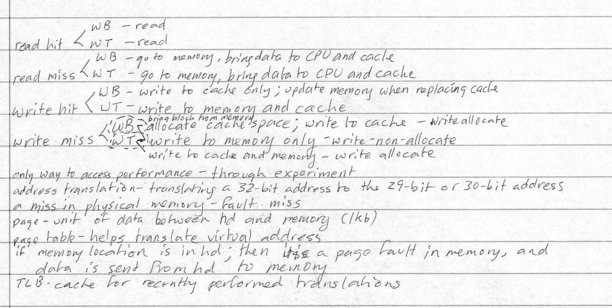 WB - read
read hit < WT - read
WB - go to memory, bring data to CPU and cache
read miss < WT - go to memory, bring data to CPU and cache
WB - write to cache only; update memory when replacing cache
write hit < WT - write to memory and cache
bring block from memory
WB - allocate cache space; write to cache - write allocate
write miss < WT write to memory only - write-non-allocate
write to cache and memory - write allocate
only way to access performance - through experiment
address translation - translating a 32-bit address to the 29-bit or 30-bit address
a miss in physical memory - fault miss
page - unit of data between hd and memory (1kb)
page table - helps translate virtual address
if memory location is in hd; then it's a page fault in memory, and
data is sent from hd to memory
TLB - cache for recently performed translations